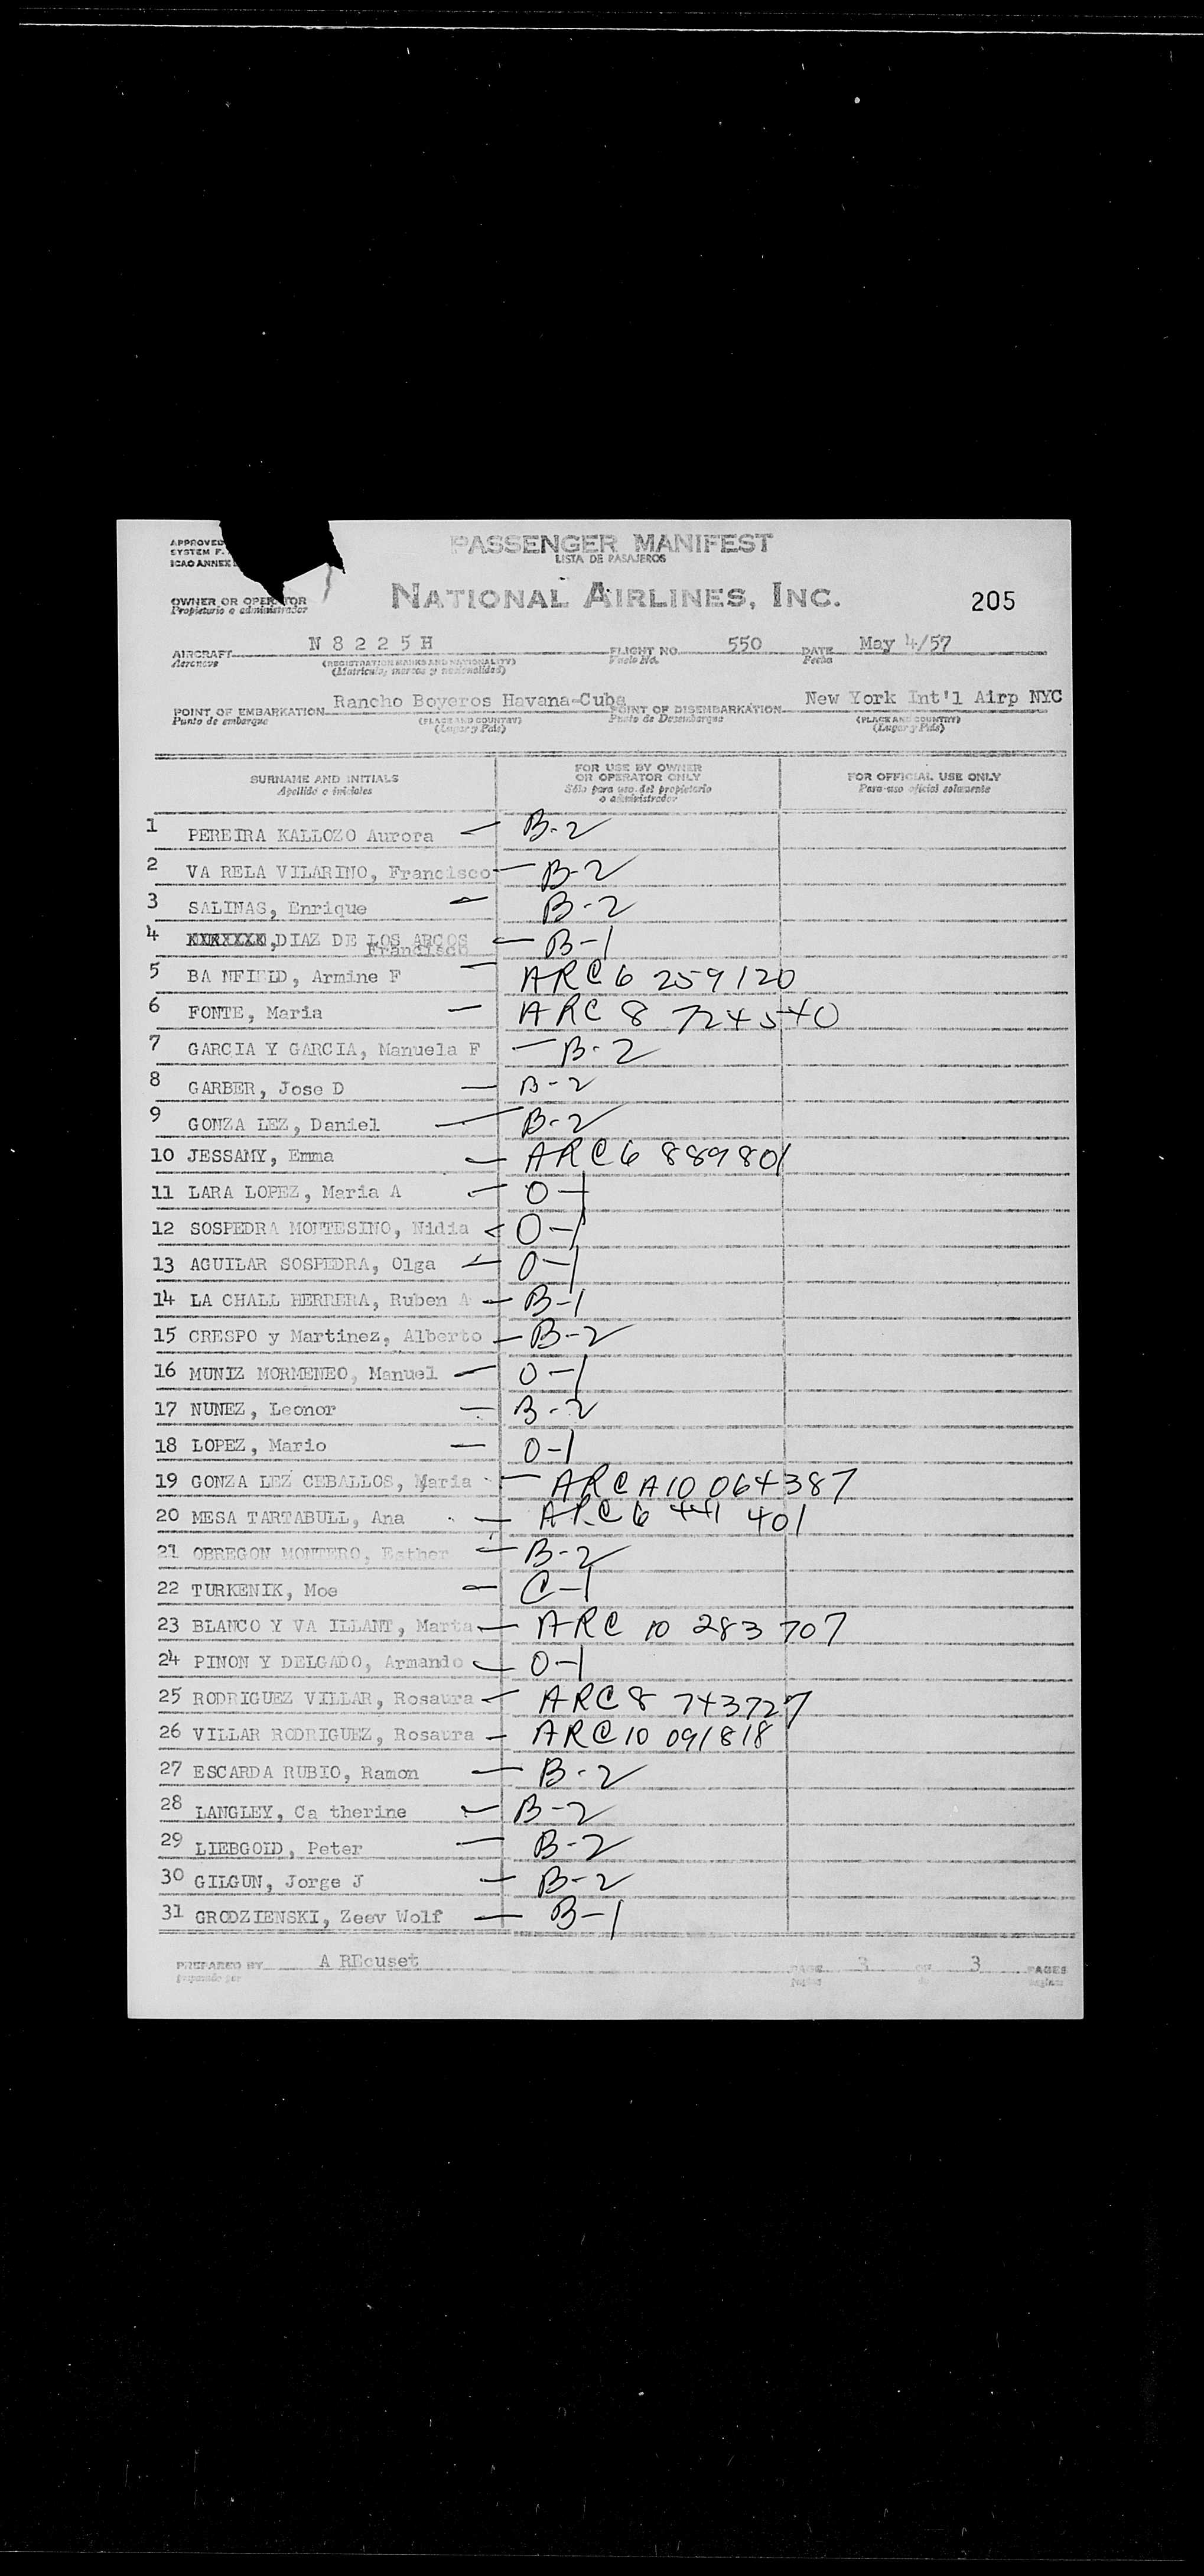 APPROVED
SYSTEM F.
ICAO ANNEX
PASSENGER MANIFEST
LISTA DE PASAJEROS
OWNER OR OPERATOR
Propietario o administrador
NATIONAL AIRLINES, INC.
205
AIRCRAFT N 8 2 2 5 H FLIGHT NO. 550 DATE May 4/57
Aeronave (REGISTRATION MARKS AND NATIONALITY) Vuelo No. Fecha
(Matricula, marcas y nacionalidad)
POINT OF EMBARKATION Rancho Boyeros Havana-Cuba POINT OF DISEMBARKATION New York Int'l Airp NYC
Punto de embarque (PLACE AND COUNTRY) Punto de Desembarque (PLACE AND COUNTRY)
(Lugar y País) (Lugar y País)
SURNAME AND INITIALS
Apellido e iniciales
FOR USE BY OWNER
OR OPERATOR ONLY
Sólo para uso del propietario
o administrador
FOR OFFICIAL USE ONLY
Para uso oficial solamente
1 PEREIRA KALLOZO Aurora — B-2
2 VA RELA VILARINO, Francisco — B-2
3 SALINAS, Enrique — B-2
4 ,DIAZ DE LOS ARCOS — B-1
Francisco
5 BA NFIELD, Armine F — ARC 6 259120
6 FONTE, Maria — ARC 8 724540
7 GARCIA Y GARCIA, Manuela F — B-2
8 GARBER, Jose D — B-2
9 GONZA LEZ, Daniel — B-2
10 JESSAMY, Emma — ARC 6 889801
11 LARA LOPEZ, Maria A — O-1
12 SOSPEDRA MONTESINO, Nidia — O-1
13 AGUILAR SOSPEDRA, Olga — O-1
14 LA CHALL HERRERA, Ruben A — B-1
15 CRESPO y Martinez, Alberto — B-2
16 MUNIZ MORMENEO, Manuel — O-1
17 NUNEZ, Leonor — B-2
18 LOPEZ, Mario — O-1
19 GONZA LEZ CEBALLOS, Maria — ARC A10 064387
20 MESA TARTABULL, Ana — ARC 6 441 401
21 OBREGON MONTERO, Esther — B-2
22 TURKENIK, Moe — C-1
23 BLANCO Y VA ILLANT, Marta — ARC 10 283 707
24 PINON Y DELGADO, Armando — O-1
25 RODRIGUEZ VILLAR, Rosaura — ARC 8 743727
26 VILLAR RODRIGUEZ, Rosaura — ARC 10 091818
27 ESCARDA RUBIO, Ramon — B-2
28 LANGLEY, Ca therine — B-2
29 LIEBGOLD, Peter — B-2
30 GILGUN, Jorge J — B-2
31 GRODZIENSKI, Zeev Wolf — B-1
PREPARED BY A REcuset PAGE 3 OF 3 PAGES